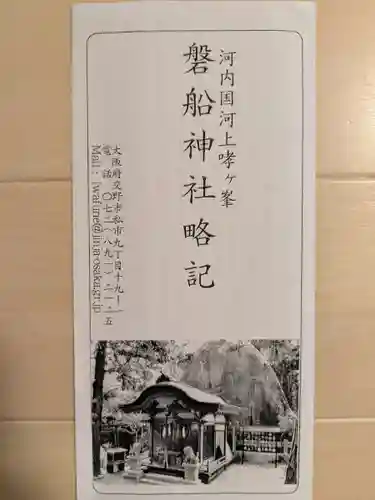 河内国河上哮ヶ峯
磐船神社略記
大阪府交野市私市九丁目十九ー一
電話 〇七二ー八九一ー二一二五
Mail: iwafune@jinja-osaka.gr.jp